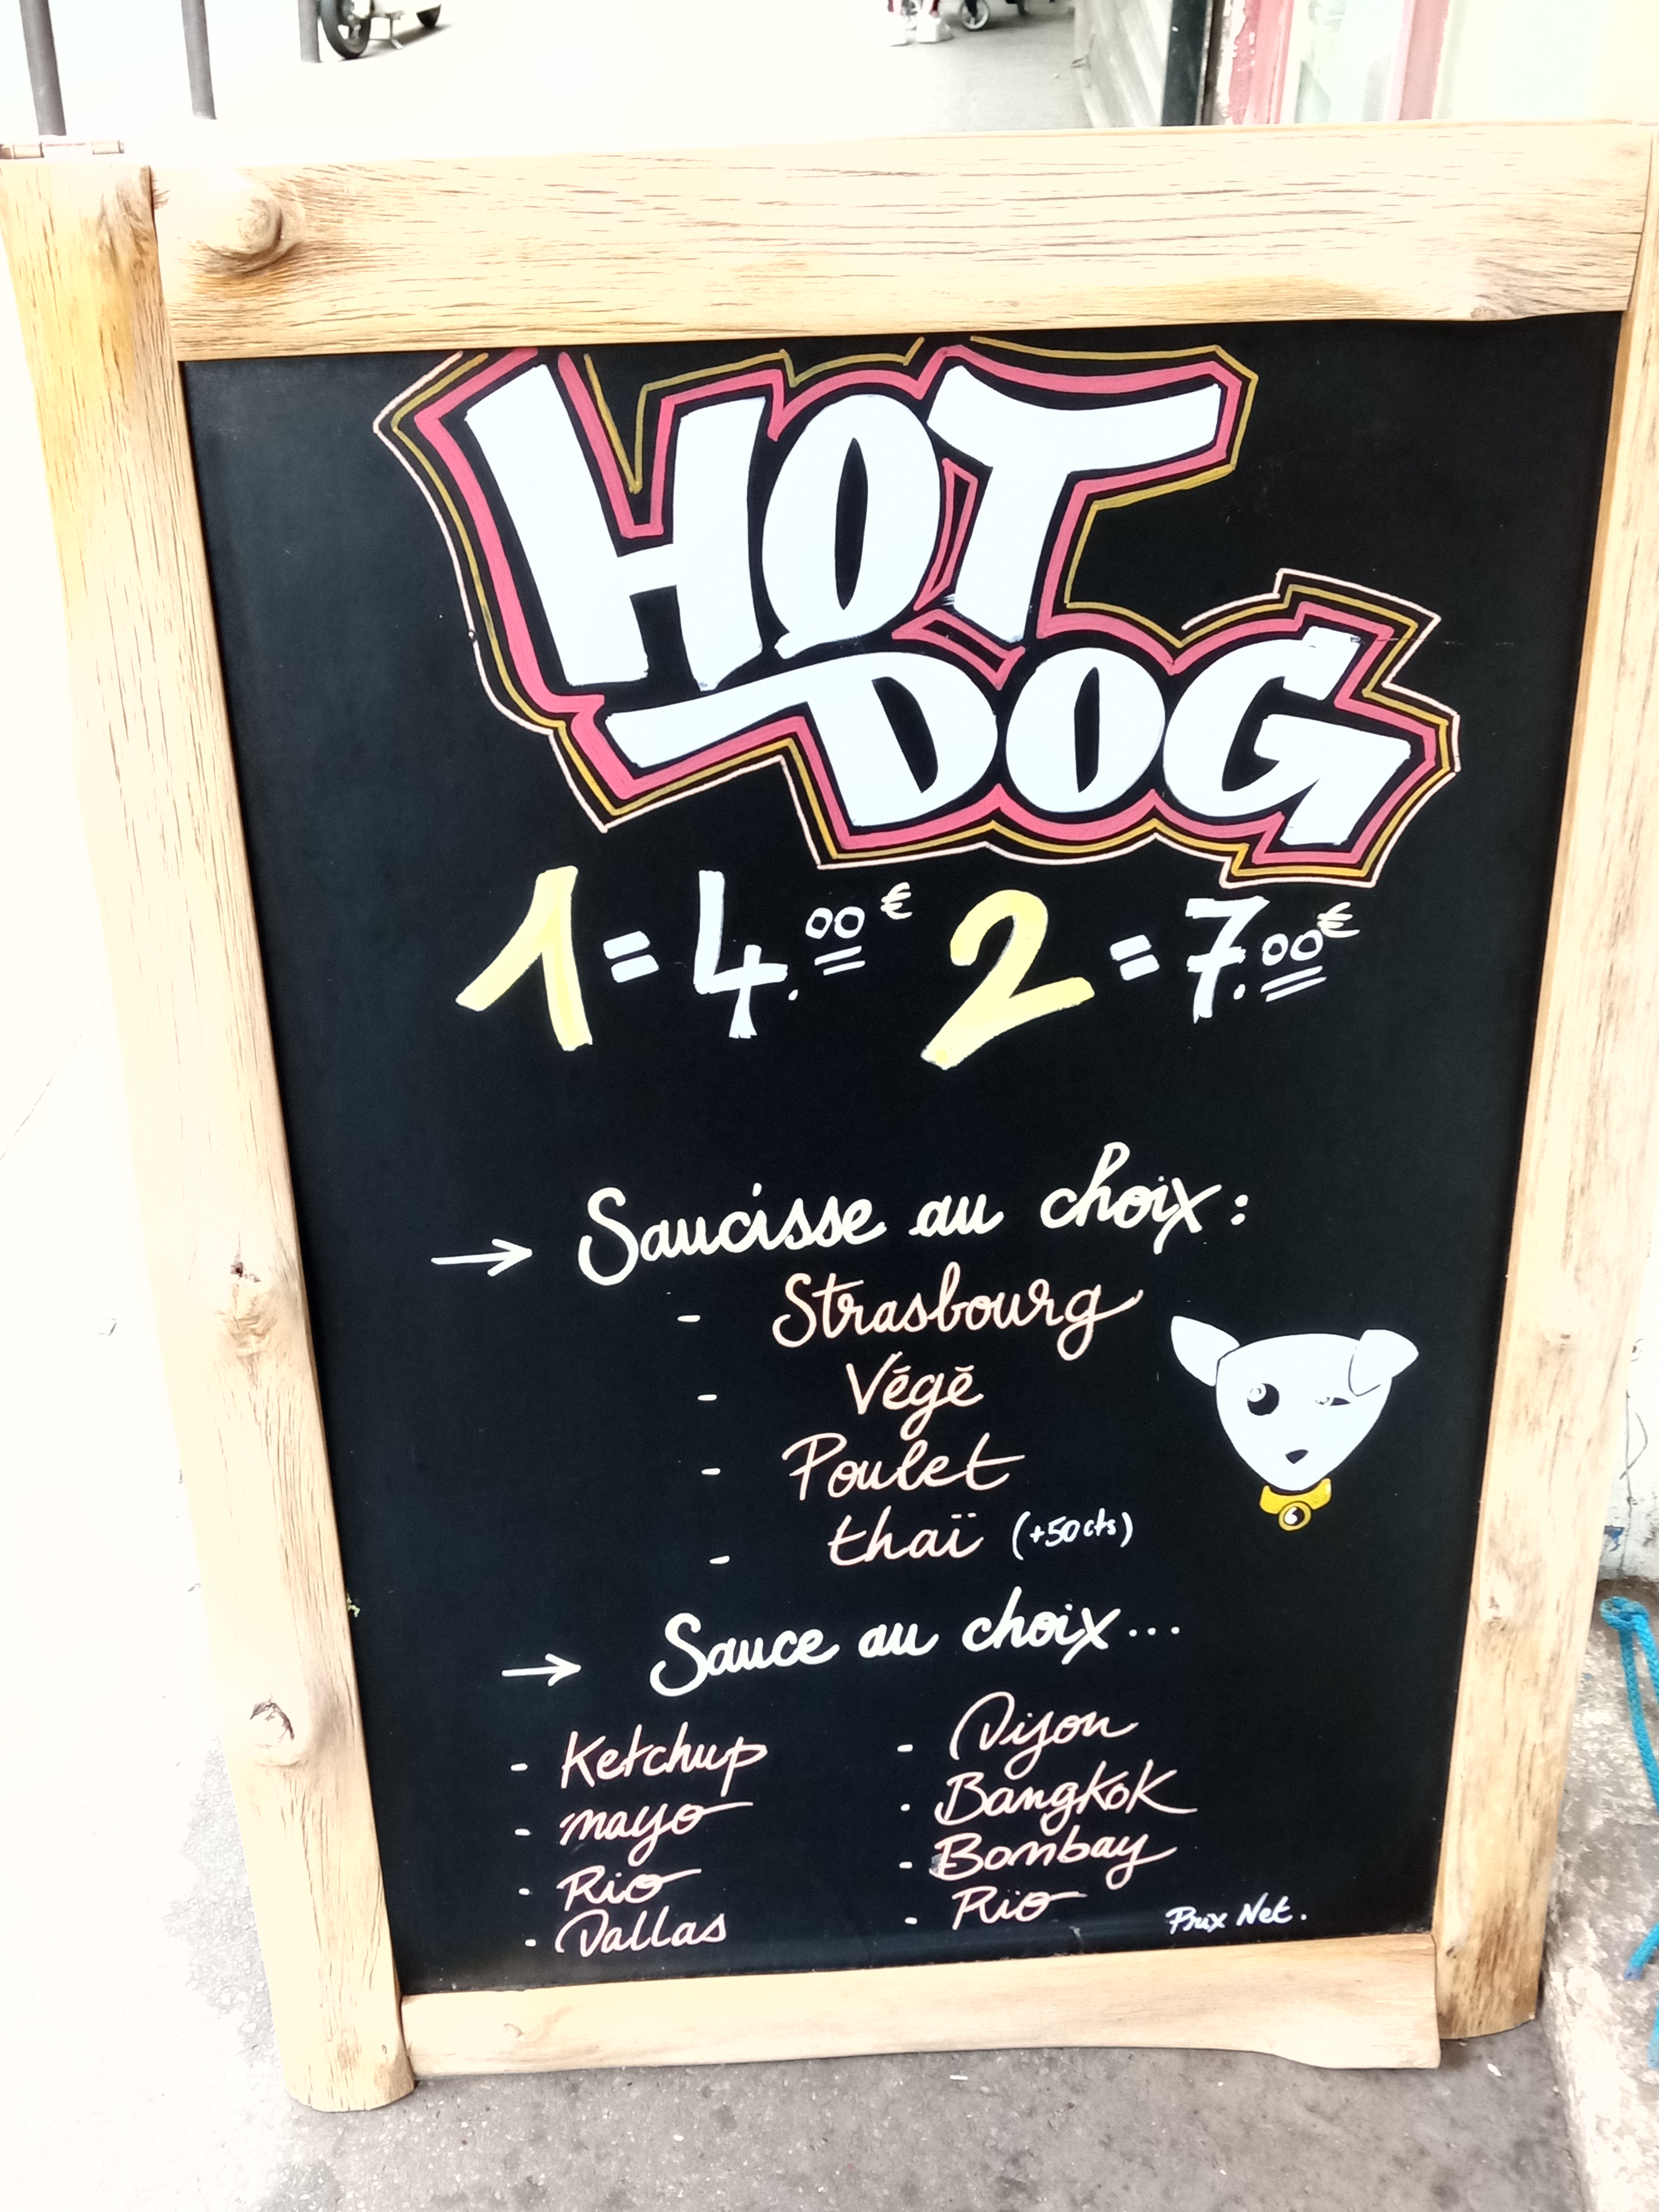 HOT
DOG
1 = 4.00€ 2 = 7.00€
→ Saucisse au choix :
- Strasbourg
- Végé
- Poulet
- thaï (+50cts)
→ Sauce au choix...
- Ketchup
- mayo
- Rio
- Dallas
- Dijon
- Bangkok
- Bombay
- Rio
Prix Net.